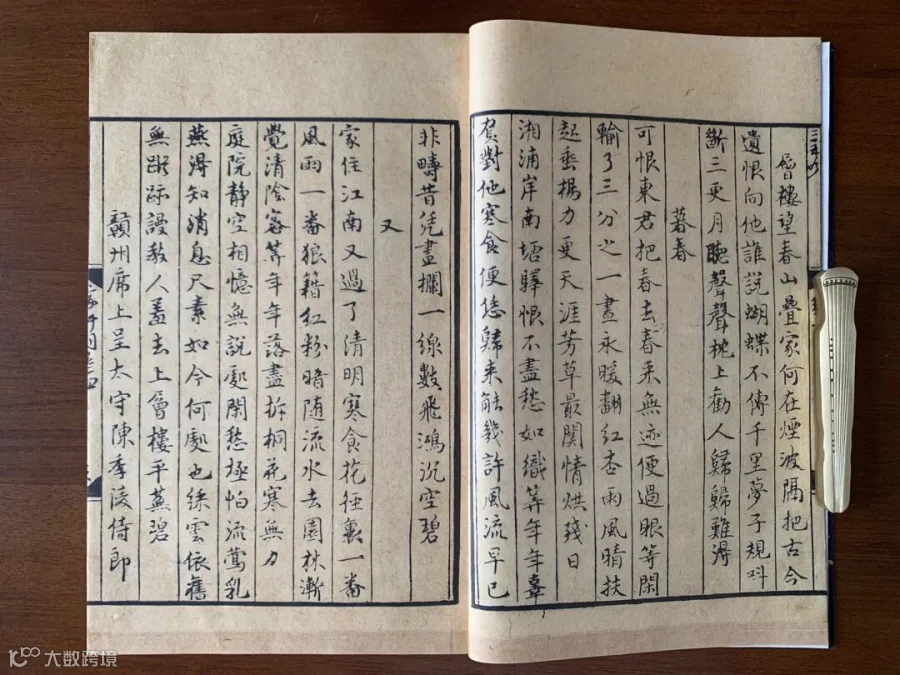 層樓望春山疊家何在煙波隔把古今
遺恨向他誰說蝴蝶不傳千里夢子規叫
斷三更月聽聲聲枕上勸人歸歸難得
暮春
可恨東君把春去春來無迹便過眼等閑
輸了三分之一晝永暖翻紅杏雨風晴扶
起垂楊力更天涯芳草最関情烘殘日
湘浦岸南塘驛恨不盡愁如織筭年年辜
負對他寒食便恁歸來能幾許風流早已
非疇昔凭畫欄一線數飛鴻沉空碧
又
家住江南又過了清明寒食花徑裏一番
風雨一番狼籍紅粉暗隨流水去園林漸
覺清陰密筭年年落盡拆桐花寒無力
庭院靜空相憶無說處閑愁極怕流鶯乳
燕得知消息尺素如今何處也綵雲依舊
無蹤跡謾教人羞去上層樓平蕪碧
贛州席上呈太守陳季陵侍郎
大数跨境